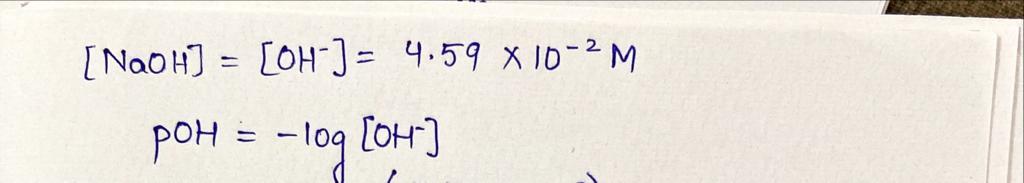 [NaOH] = [OH⁻] = 4.59 × 10⁻² M
pOH = -log [OH⁻]